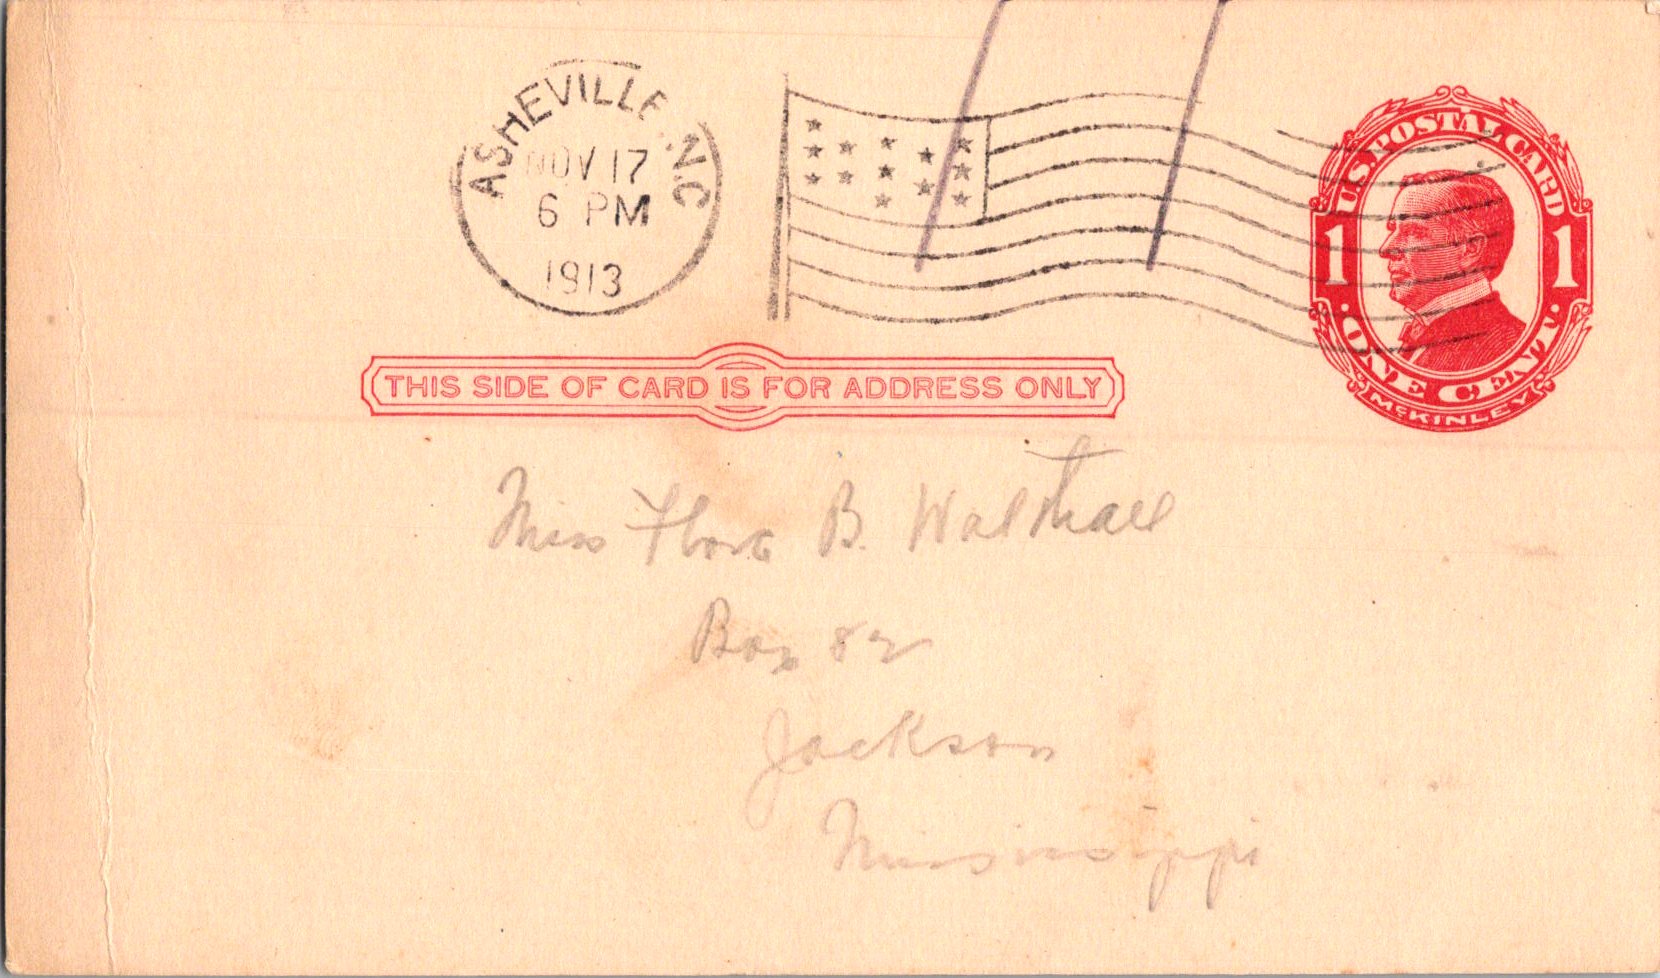 ASHEVILLE, N.C.
NOV 17
6 PM
1913
U.S. POSTAL CARD
1 1
· ONE CENT ·
McKINLEY
THIS SIDE OF CARD IS FOR ADDRESS ONLY
Miss Flora B. Walthall
Box 82
Jackson
Mississippi